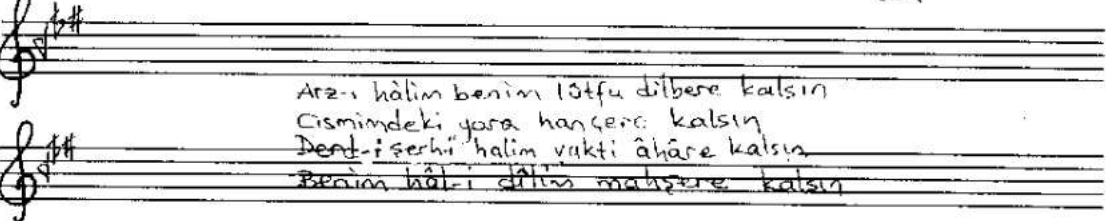 Arz-ı hâlim benim lûtfu dilbere kalsın
Cismimdeki yara hançere kalsın
Derd-i şerhi halim vakti âhâre kalsın
Benim hâl-i dîlim mahşere kalsın